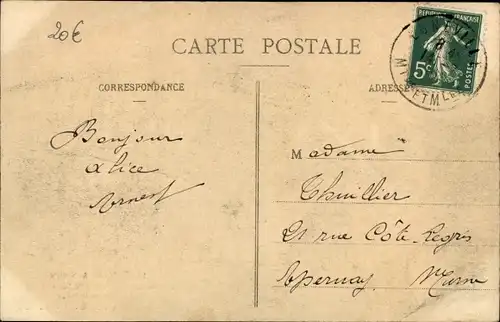 20€
CARTE POSTALE
CORRESPONDANCE
ADRESSE
REPUBLIQUE FRANÇAISE
5c
POSTES
Bonjour
Alice
Ernest
Madame
Thuillier
21 rue Côte Legris
Epernay Marne